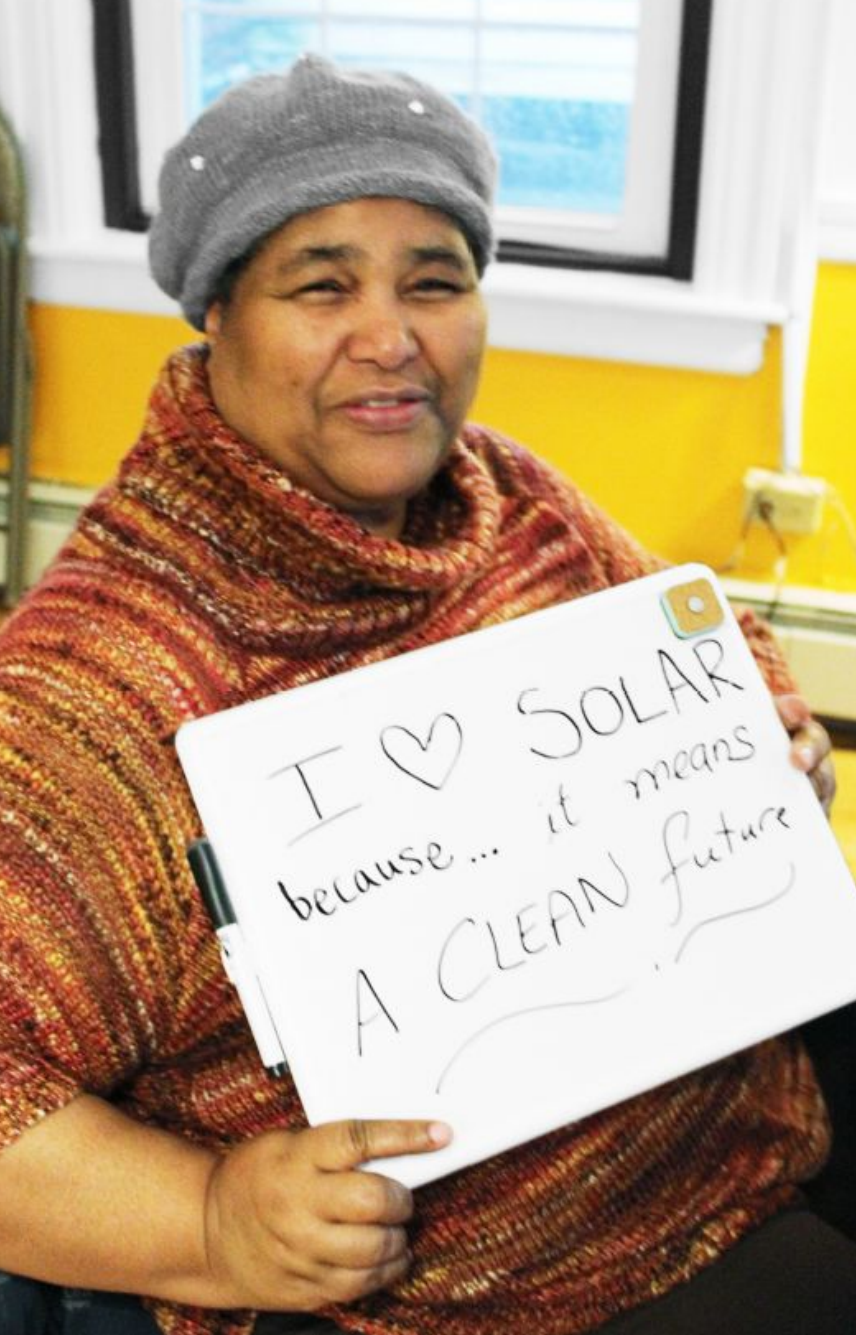 I ♡ SOLAR
because... it means
A CLEAN future